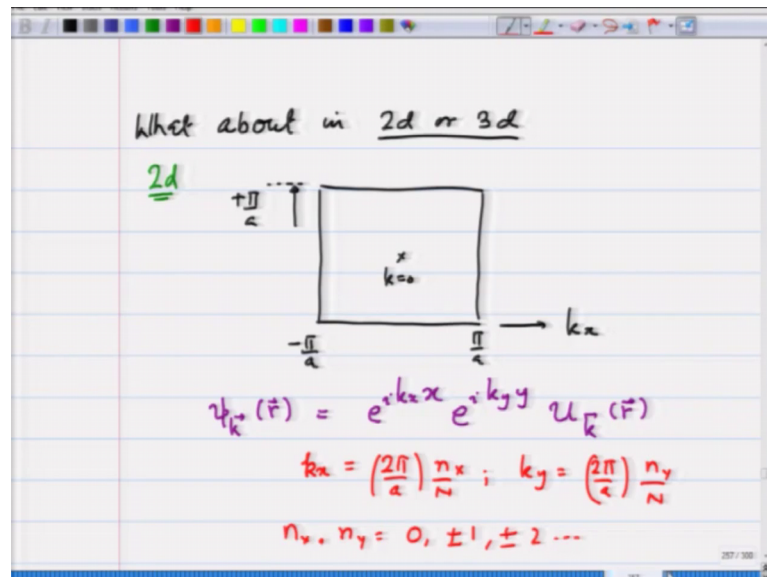 What about in 2d or 3d
2d
+π/a
k=0
-π/a π/a → kx
ψ_k⃗ (r⃗) = e^{i kx x} e^{i ky y} u_k⃗ (r⃗)
kx = (2π/a) nx/N ; ky = (2π/a) ny/N
nx, ny = 0, ±1, ±2 ...
257 / 300